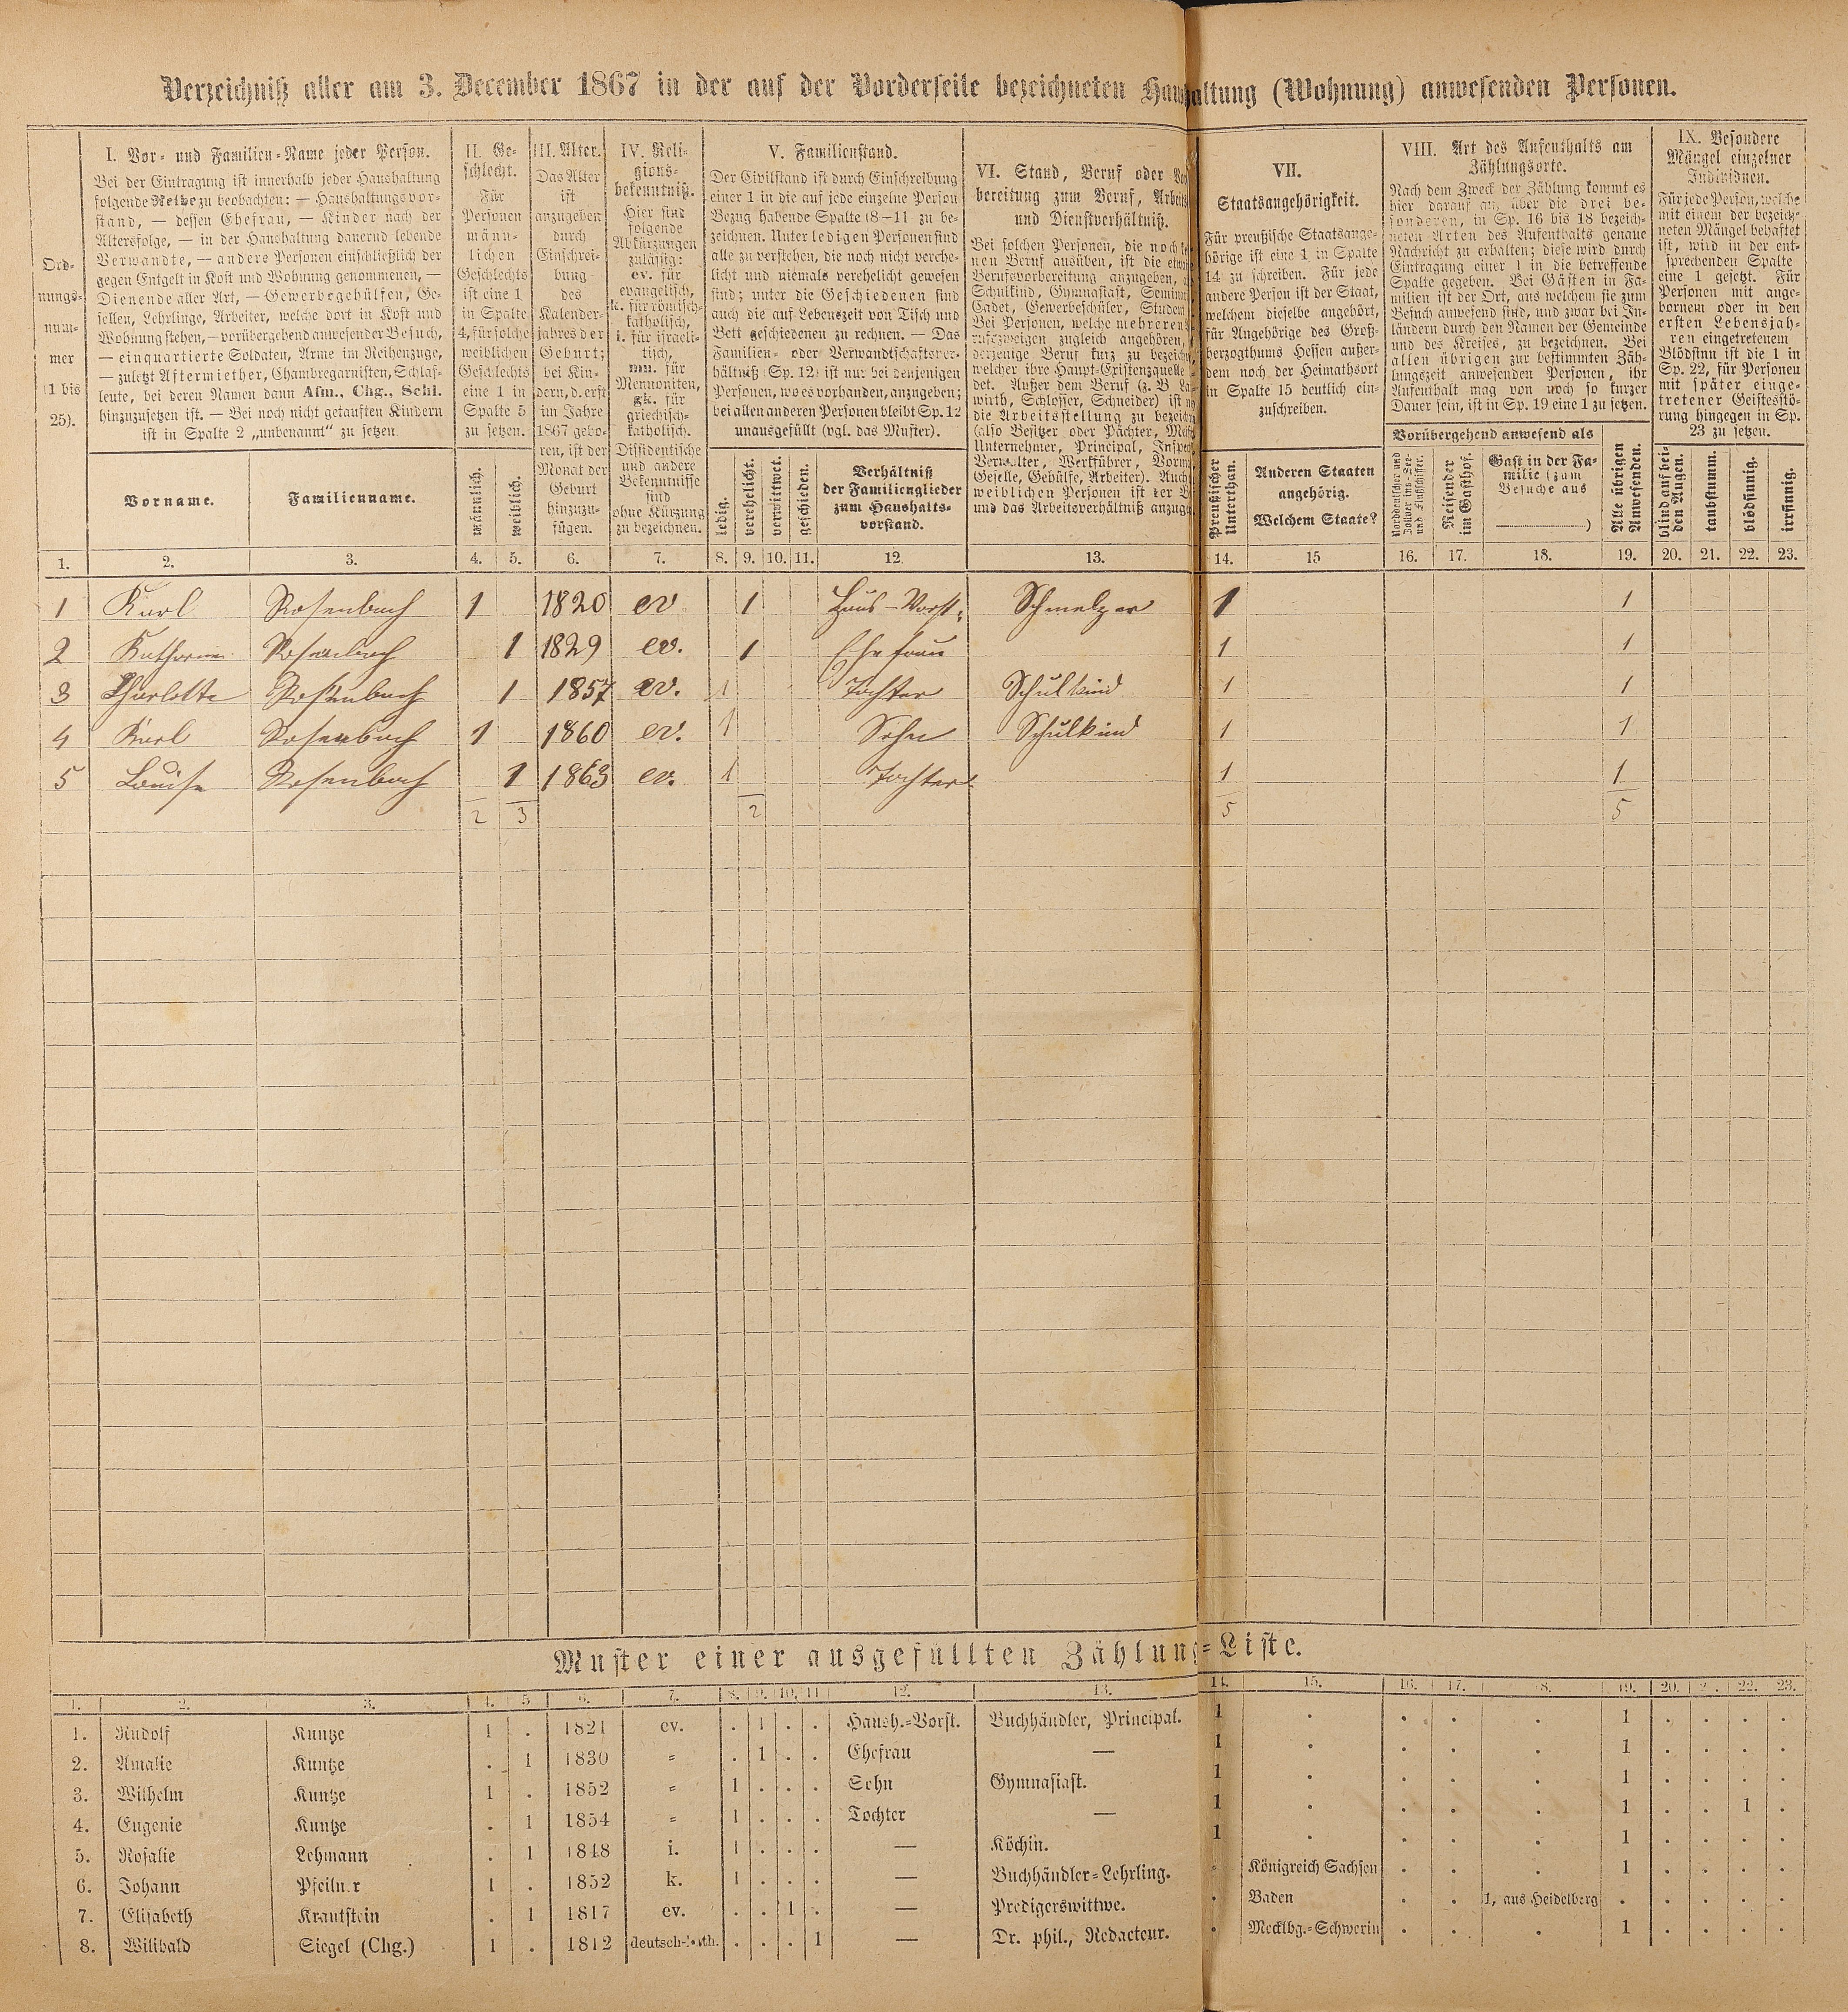 Verzeichniß aller am 3. December 1867 in der auf der Vorderseite bezeichneten Haushaltung (Wohnung) anwesenden Personen.
Ord-
nungs-
num-
mer
(1 bis
25).
I. Vor- und Familien-Name jeder Person.
Bei der Eintragung ist innerhalb jeder Haushaltung
folgende Reihe zu beobachten: — Haushaltungsvor-
stand, — dessen Ehefrau, — Kinder nach der
Altersfolge, — in der Haushaltung dauernd lebende
Verwandte, — andere Personen einschließlich der
gegen Entgelt in Kost und Wohnung genommenen, —
Dienende aller Art, — Gewerbegehülfen, Ge-
sellen, Lehrlinge, Arbeiter, welche dort in Kost und
Wohnung stehen, — vorübergehend anwesender Besuch,
— einquartierte Soldaten, Arme im Reihenzuge,
— zuletzt Aftermiether, Chambregarnisten, Schlaf-
leute, bei deren Namen dann Afm., Chg., Schl.
hinzuzusetzen ist. — Bei noch nicht getauften Kindern
ist in Spalte 2 „unbenannt" zu setzen.
Vorname.
Familienname.
II. Ge-
schlecht.
Für
Personen
männ-
lichen
Geschlechts
ist eine 1
in Spalte
4, für solche
weiblichen
Geschlechts
eine 1 in
Spalte 5
zu setzen.
männlich.
weiblich.
III. Alter.
Das Alter
ist
anzugeben
durch
Einschrei-
bung
des
Kalender-
jahres der
Geburt;
bei Kin-
dern, d. erst
im Jahre
1867 gebo-
ren, ist der
Monat der
Geburt
hinzuzu-
fügen.
IV. Reli-
gions-
bekenntniß.
Hier sind
folgende
Abkürzungen
zulässig:
ev. für
evangelisch,
k. für römisch-
katholisch,
i. für israeli-
tisch,
mn. für
Mennoniten,
gk. für
griechisch-
katholisch.
Dissidentische
und andere
Bekenntnisse
sind
ohne Kürzung
zu bezeichnen.
V. Familienstand.
Der Civilstand ist durch Einschreibung
einer 1 in die auf jede einzelne Person
Bezug habende Spalte (8—11 zu be-
zeichnen. Unter ledigen Personen sind
alle zu verstehen, die noch nicht verehe-
licht und niemals verehelicht gewesen
sind; unter die Geschiedenen sind
auch die auf Lebenszeit von Tisch und
Bett geschiedenen zu rechnen. — Das
Familien- oder Verwandtschaftsver-
hältniß (Sp. 12) ist nur bei denjenigen
Personen, wo es vorhanden, anzugeben;
bei allen anderen Personen bleibt Sp. 12
unausgefüllt (vgl. das Muster).
ledig.
verehelicht.
verwittwet.
geschieden.
Verhältniß
der Familienglieder
zum Haushalts-
vorstand.
VI. Stand, Beruf oder Vor
bereitung zum Beruf, Arbeits
und Dienstverhältniß.
Bei solchen Personen, die noch
nen Beruf ausüben, ist die
Berufsvorbereitung anzugeben,
Schulkind, Gymnasiast, Seminar
Cadet, Gewerbeschüler, Student
Bei Personen, welche mehreren
rufszweigen zugleich angehören,
derjenige Beruf kurz zu bezeichn
welcher ihre Haupt-Existenzquelle
det. Außer dem Beruf (z. B. La
wirth, Schlosser, Schneider) ist
die Arbeitsstellung zu bezeichn
(also Besitzer oder Pächter, Meist
Unternehmer, Principal, Inspec
Verwalter, Werkführer, Vorm
Geselle, Gehülfe, Arbeiter). Auch
weiblichen Personen ist der B
und das Arbeitsverhältniß anzuge
VII.
Staatsangehörigkeit.
Für preußische Staatsange-
hörige ist eine 1 in Spalte
14 zu schreiben. Für jede
andere Person ist der Staat,
welchem dieselbe angehört,
für Angehörige des Groß-
herzogthums Hessen außer-
dem noch der Heimathsort
in Spalte 15 deutlich ein-
zuschreiben.
Preußischer
Unterthan.
Anderen Staaten
angehörig.
Welchem Staate?
VIII. Art des Aufenthalts am
Zählungsorte.
Nach dem Zweck der Zählung kommt es
hier darauf an, über die drei be-
sonderen, in Sp. 16 bis 18 bezeich-
neten Arten des Aufenthalts genaue
Nachricht zu erhalten; diese wird durch
Eintragung einer 1 in die betreffende
Spalte gegeben. Bei Gästen in Fa-
milien ist der Ort, aus welchem sie zum
Besuch anwesend sind, und zwar bei In-
ländern durch den Namen der Gemeinde
und des Kreises, zu bezeichnen. Bei
allen übrigen zur bestimmten Zäh-
lungszeit anwesenden Personen, ihr
Aufenthalt mag von noch so kurzer
Dauer sein, ist in Sp. 19 eine 1 zu setzen.
Vorübergehend anwesend als
Norddeutscher und
Zollver ins-See-
und Flußschiffer.
Reisender
im Gasthof.
Gast in der Fa-
milie (zum
Besuche aus
)
Alle übrigen
Anwesenden.
IX. Besondere
Mängel einzelner
Individuen.
Für jede Person, welche
mit einem der bezeich-
neten Mängel behaftet
ist, wird in der ent-
sprechenden Spalte
eine 1 gesetzt. Für
Personen mit ange-
bornem oder in den
ersten Lebensjah-
ren eingetretenem
Blödsinn ist die 1 in
Sp. 22, für Personen
mit später einge-
tretener Geistesstö-
rung hingegen in Sp.
23 zu setzen.
blind auf bei-
den Augen.
taubstumm.
blödsinnig.
irrsinnig.
1. 2. 3. 4. 5. 6. 7. 8. 9. 10. 11. 12. 13. 14. 15 16. 17. 18. 19. 20. 21. 22. 23.
1 Karl Rosenbach 1 1820 ev 1 Haus-Vorst. Schmelzer 1 1
2 Katharine Rosenbach 1 1829 ev. 1 Ehefrau 1 1
3 Charlotte Rosenbach 1 1857 ev. 1 Tochter Schulkind 1 1
4 Karl Rosenbach 1 1860 ev. 1 Sohn Schulkind 1 1
5 Louise Rosenbach 1 1863 ev. 1 Tochter 1 1
2 3 2 5 5
Muster einer ausgefüllten Zählungs-Liste.
1. 2. 3. 4. 5 6. 7. 8. 9. 10. 11 12. 13. 14. 15. 16. 17. 8. 19. 20. 2 . 22. 23.
1. Rudolf Kuntze 1 . 1821 ev. . 1 . . Haush.-Vorst. Buchhändler, Principal. 1 . . . . 1 . . . .
2. Amalie Kuntze . 1 1830 = . 1 . . Ehefrau — 1 . . . . 1 . . . .
3. Wilhelm Kuntze 1 . 1852 = 1 . . . Sohn Gymnasiast. 1 . . . . 1 . . . .
4. Eugenie Kuntze . 1 1854 = 1 . . . Tochter — 1 . . . . 1 . . 1 .
5. Rosalie Lehmann . 1 1848 i. 1 . . . — Köchin. 1 . . . . 1 . . . .
6. Johann Pfeilner 1 . 1852 k. 1 . . . — Buchhändler-Lehrling. . Königreich Sachsen . . . 1 . . . .
7. Elisabeth Krautstein . 1 1817 ev. . . 1 . — Predigerswittwe. . Baden . . 1, aus Heidelberg . . . . .
8. Wilibald Siegel (Chg.) 1 . 1812 deutsch-kath. . . . 1 — Dr. phil., Redacteur. . Mecklbg.-Schwerin . . . 1 . . . .